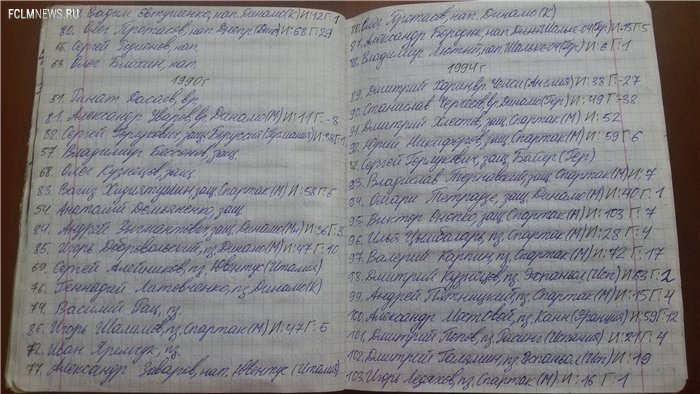 FCLMNEWS.RU
Вадим Евтушенко, нап. Динамо(К) И:12 Г:1
80. Олег Протасов, нап. Днепр(Дн) И:68 Г:29
66. Сергей Родионов, нап.
63. Олег Блохин, нап.
1990г
51. Ринат Дасаев, вр.
81. Александр Уваров, вр. Динамо(М) И:11 Г:-8
82. Сергей Горлукович, защ. Боруссия(Германия)
57. Владимир Бессонов, защ.
68. Олег Кузнецов, защ.
83. Вагиз Хидиятуллин, защ. Спартак(М) И:58 Г:6
54. Анатолий Демьяненко, защ.
84. Андрей Зыгмантович, защ. Динамо(Мн) И:36 Г:3
85. Игорь Добровольский, пз. Динамо(М) И:47 Г:10
69. Сергей Алейников, пз. Ювентус(Италия)
76. Геннадий Литовченко, пз. Динамо(К)
74. Василий Рац, пз.
86. Игорь Шалимов, пз. Спартак(М) И:47 Г:5
72. Иван Яремчук, пз.
77. Александр Заваров, нап. Ювентус(Италия)
Олег Протасов, нап. Динамо(К)
87. Александр Бородюк, нап. Шальке-04(Гер) Г:5
88. Владимир Лютый, нап. Шальке-04(Гер) И:6 Г:1
1994г
89. Дмитрий Харин, вр. Челси(Англия) И:38 Г:-27
90. Станислав Черчесов, вр. Динамо(Гер) И:49 Г:-38
91. Дмитрий Хлестов, защ. Спартак(М) И:52
92. Юрий Никифоров, защ. Спартак(М) И:59 Г:6
Сергей Горлукович, защ. Байер(Гер)
93. Владислав Тернавский, защ. Спартак(М) И:7
94. Омари Тетрадзе, защ. Динамо(М) И:40 Г:1
95. Виктор Онопко, защ. Спартак(М) И:103 Г:7
96. Илья Цымбаларь, пз. Спартак(М) И:28 Г:4
97. Валерий Карпин, пз. Спартак(М) И:72 Г:17
98. Дмитрий Кузнецов, пз. Эспаньол(Исп) Г:2
99. Андрей Пятницкий, пз. Спартак(М) И:15 Г:4
100. Александр Мостовой, пз. Канн(Франция) И:59 Г:12
101. Дмитрий Попов, пз. Расинг(Испания) И:21 Г:4
102. Дмитрий Галямин, пз. Эспаньол(Исп) И:19
103. Игорь Ледяхов, пз. Спартак(М) И:16 Г:1